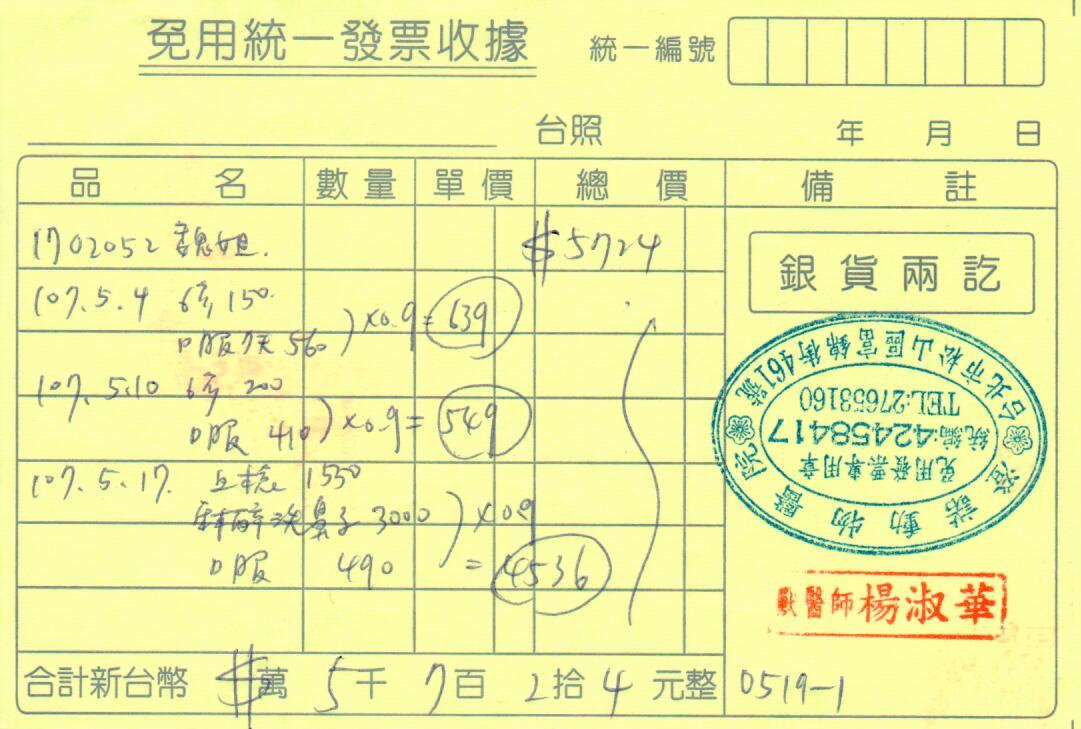 免用統一發票收據
統一編號
台照
年 月 日
品名 數量 單價 總價 備註
1702052 魏姐. $5724
107.5.4 150
口服7天 560 ) x0.9 = 639
107.5.10 200
口服 410 ) x0.9 = 549
107.5.17. 1550
麻醉洗鼻子 3000 ) x0.9
口服 490 = 4536
銀貨兩訖
諾動物醫院
台北市松山區富錦街461號
TEL:27653160
統編:42458417
免用發票專用章
獸醫師楊淑華
合計新台幣 $萬 5千 7百 2拾 4元整 0519-1